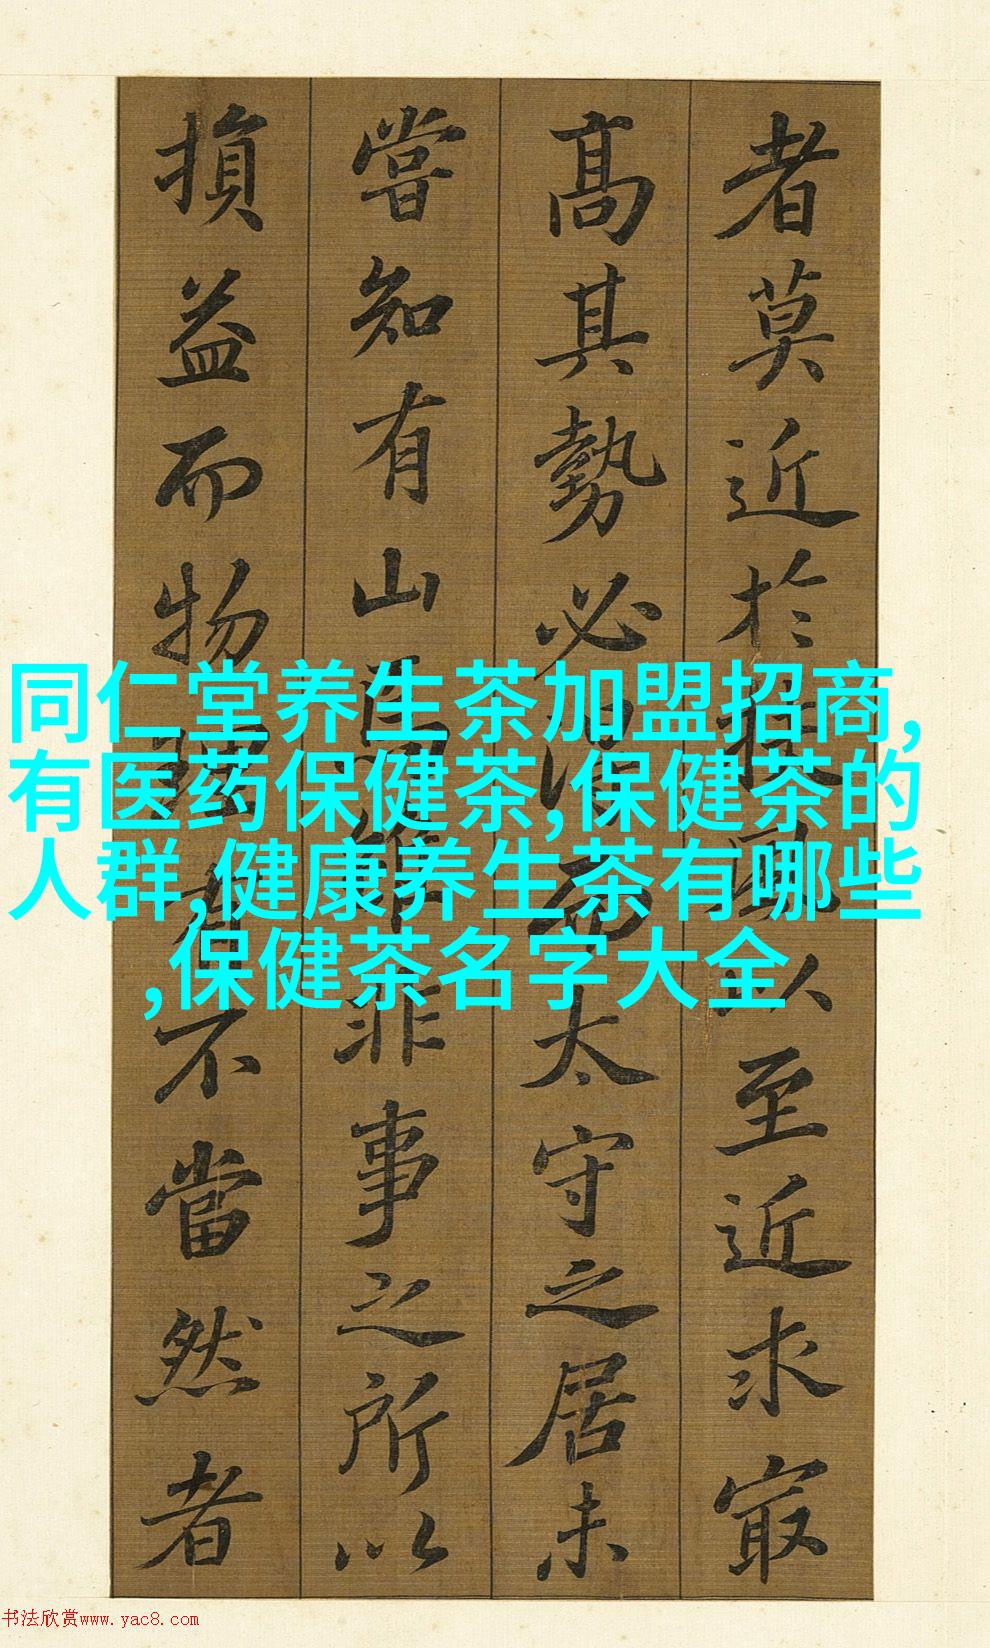 者莫近於扶風以至近求最
高其勢必得而太守之居未
嘗知有山焉雖非事之所以
損益而物理有不當然者
同仁堂养生茶加盟招商,
有医药保健茶,保健茶的
人群,健康养生茶有哪些
,保健茶名字大全
书法欣赏www.yac8.com